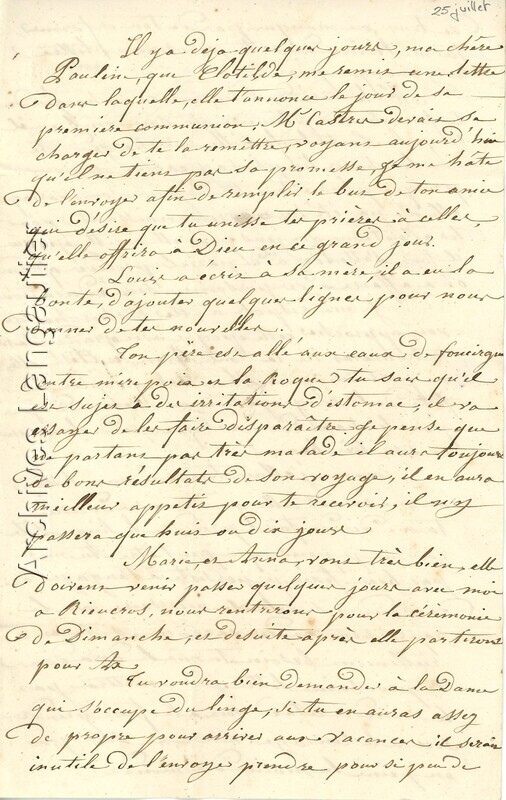 25 juillet
Il y a deja quelques jours, ma chère
Pauline, que Clotilde, me remis une lettre
dans laquelle, elle t'annonce le jour de sa
premiere communion, Mr Castres devait se
charger de te la remêttre, voyans aujourd'hui
qu'il ne tiens pas sa promesse, je me hâte
de l'envoyer afin de remplir le but de ton amie
qui désire que tu unisse tes prières à celles,
qu'elle offrira à Dieu en ce grand jour.
Louis a écris à sa mère, il a eu la
bonté, d'ajouter quelques lignes pour nous
donner de tes nouvelles.
Ton père est allé aux eaux de foncirque
entre mirepoix et la Roque tu sais qu'il
est sujet a des irritations d'estomac, il va
essayer de les faire disparaître. Je pense que
ne partant pas très malade il aura toujours
de bons résultats de son voyage, il en aura
meilleur appetit pour te recevoir, il n'y
passera que huit ou dix jours
Marie, et Anna, vont très bien, elle
doivent venir passer quelques jours avec moi
a Rieucros, nous rentrerons pour la cérémonie
de Dimanche, et desuite après elle partiront
pour Ax.
Tu voudra bien demander à la Dame
qui s'occupe du linge, si tu en auras assez
de propre pour arriver aux vacances il serait
inutile de l'envoyer prendre pour si peu de
Archives Lengautier